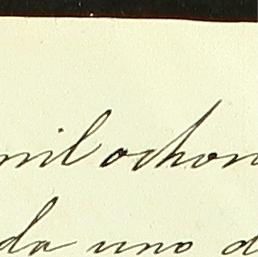 mil ochon
da uno d